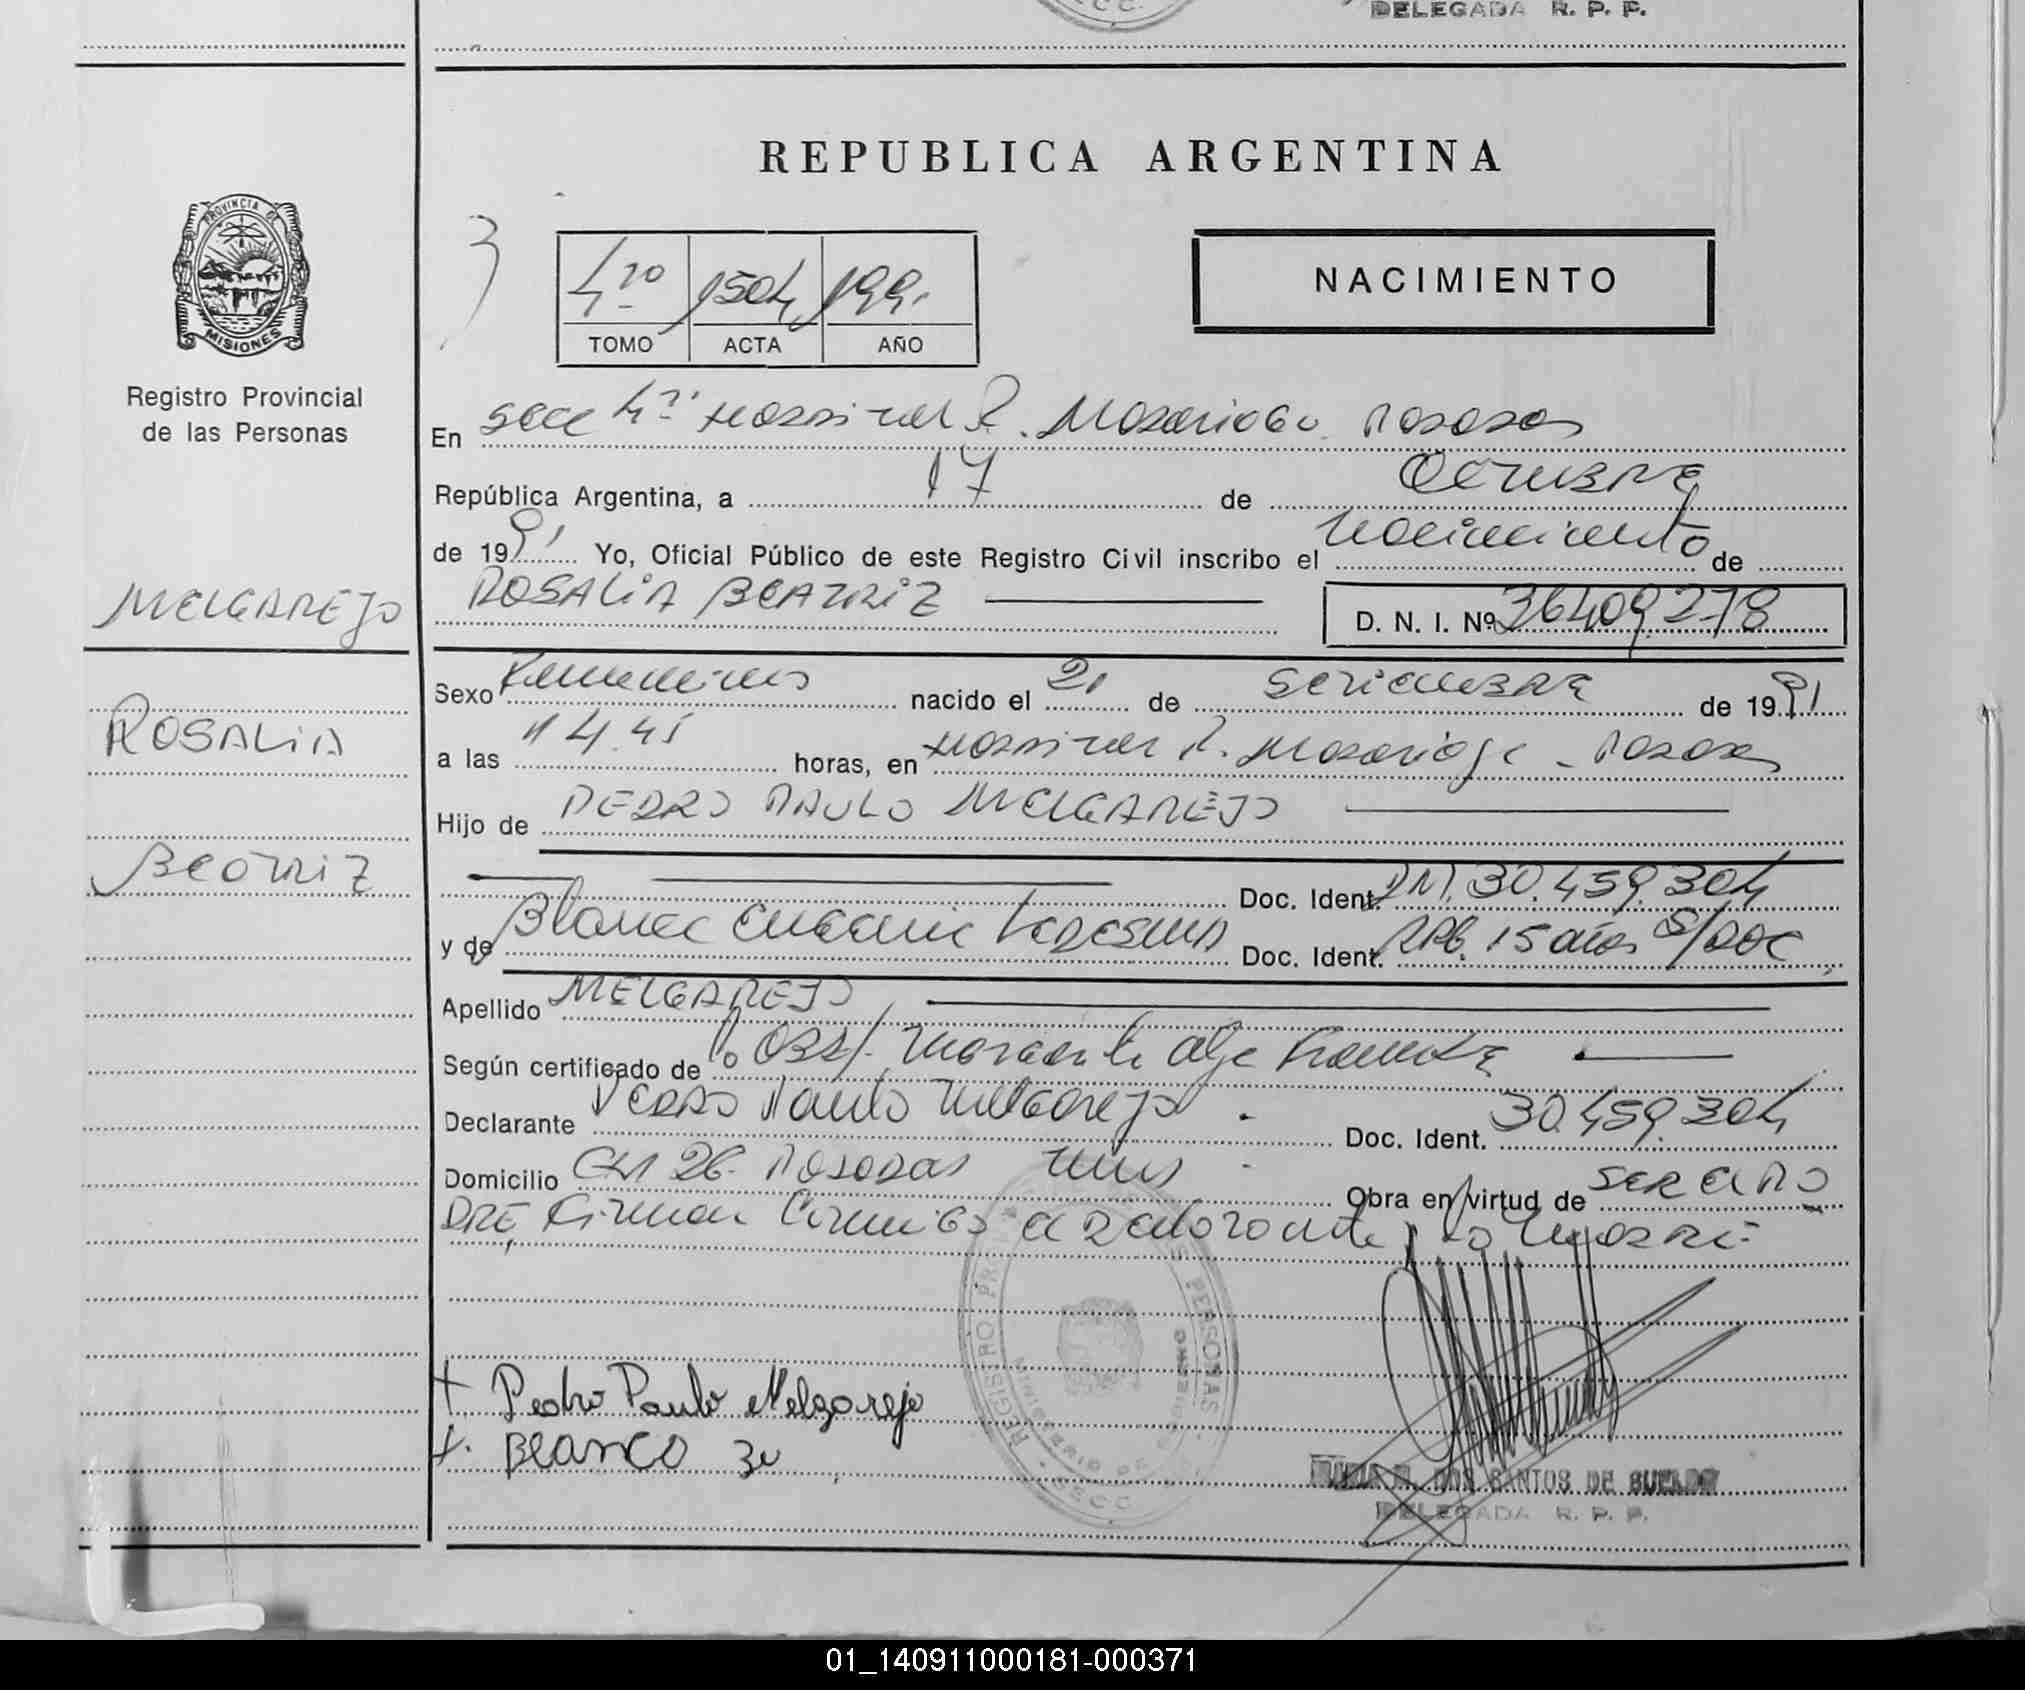 DELEGADA R. P. P.
REPUBLICA ARGENTINA
PROVINCIA DE
MISIONES
Registro Provincial
de las Personas
3
4to 1504 1991
TOMO ACTA AÑO
NACIMIENTO
En Secc 4ta Hospital R. Madariaga Posadas
República Argentina, a 17 de Octubre
de 1991 Yo, Oficial Público de este Registro Civil inscribo el nacimiento de
MELGAREJO
ROSALIA BEATRIZ
D. N. I. Nº 36409278
Sexo Femenino nacido el 21 de Setiembre de 1991
ROSALIA
a las 14.45 horas, en Hospital R. Madariaga - Posadas
Hijo de PEDRO PAULO MELGAREJO
BEATRIZ
Doc. Ident. DNI. 30.459.304
y de Blanca Eugenia Ledesma Doc. Ident. 15 años S/DOC
Apellido MELGAREJO
Según certificado de la Obst.
Declarante Pedro Paulo Melgarejo. Doc. Ident. 30.459.304
Domicilio 26. Posadas Mns. Obra en virtud de ser el Pa
dre, Firman Conmigo el declarante y la madre.-
+ Pedro Paulo Melgarejo
+. BLANCO
REGISTRO PROVINCIAL DE LAS PERSONAS
MINISTERIO DE GOBIERNO
SECC
DOS SANTOS DE
DELEGADA R. P. P.
01_140911000181-000371